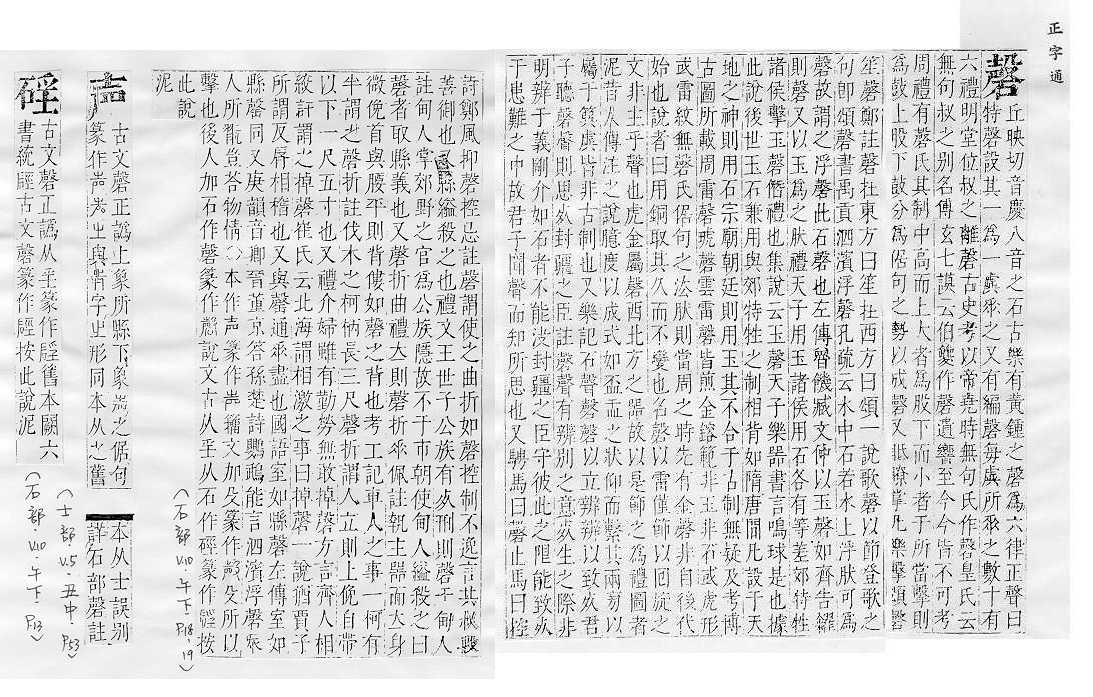 正字通
磬 丘映切音慶八音之石古樂有黃鍾之磬爲六律正聲曰
特磬設其一爲一虡縣之又有編磬每虡所縣之數十有
六禮明堂位叔之離磬古史考以帝堯時無句氏作磬皇氏云
無句叔之別名傅玄七謨云伯夔作磬遺響至今今皆不可考
周禮有磬氏其制中高而上大者爲股下而小者于所當擊則
爲鼓上股下鼓分爲倨句之勢以成磬又眂瞭掌凡樂擊頌磬
笙磬鄭註磬在東方曰笙在西方曰頌一說歌磬以節登歌之
句卽頌磬書禹貢泗濱浮磬孔疏云水中石若水上浮肰可爲
磬故謂之浮磬此石磬也左傳臧文仲以玉磬如齊告糴
則磬又以玉爲之肰禮天子用玉諸侯用石各有等差郊特牲
諸侯擊玉磬僭禮也集說云玉磬天子樂器書言鳴球是也據
此說後世玉石兼用與郊特牲之制相背如隋唐間凡設于天
地之神則用石宗廟朝廷則用玉其不合于古制無疑及考博
古圖所載周雷磬虎磬雲雷磬皆煎金鎔範非玉非石或虎形
武雷紋無磬氏倨句之法肰則當周之時先有金磬非自後代
始也說者曰用銅取其久而不變也名磬以雷僅節以回旋之
文非主乎聲也虎金屬磬西北方之器故以是節之爲禮圖者
泥昔人傳注之說臆度以成式如盃盂之狀仰而繫其兩旁
屬于簨虡皆非古制也又樂記石聲磬磬以立辨辨以致死君
子聽磬聲則思死封疆之臣註磬聲有辨別之意死生之際非
明辨于義剛介如石者不能决封疆之臣守彼此之限能致死
于患難之中故君子聞聲而知所思也又騁馬曰磬止馬曰控
詩鄭風抑磬控忌註磬謂使之曲折如磬控制不逸言共叔段
善御也又縣縊殺之也禮文王世子公族有死刑則磬于甸人
註甸人掌郊野之官爲公族隱故不于市朝使甸人縊殺之曰
磬者取縣義也又磬折曲禮立則磬折垂佩註執主器而立身
微俛首與腰平則背僂如磬之背也考工記車人之事一柯有
半謂之磬折註伐木之柯柄長三尺磬折謂人立則上俛自帶
以下一尺五寸也又禮介婦雖有勤勞無敢掉磬方言齊人相
絞訐謂之掉磬崔氏云北海謂相激之事曰掉磬一說猶賈子
所謂反脣相稽也又與罄通乘盡也國語室如縣磬左傳室如
縣罄同又庚韻音卿晉董京答孫楚詩鸚鵡能言泗濱浮磬衆
人所翫豈荅物情〇本作声篆作殸籀文加殳篆作殸殳所以
擊也後人加石作磬篆作磬說文古从巠从石作硜篆作硜按
此說
泥
声 古文磬正譌上象所縣下象声之倨句
篆作声声㞢與肯字㞢形同本从之舊
本从士誤别
詳石部磬註
硜 古文磬正譌从巠篆作硜舊本闕六
書統硜古文磬篆作硜按此說泥
(石部 V.10·午下·P.18-19)
(士部 V.5·丑中·P.53)
(石部 V.10·午下 P.13)